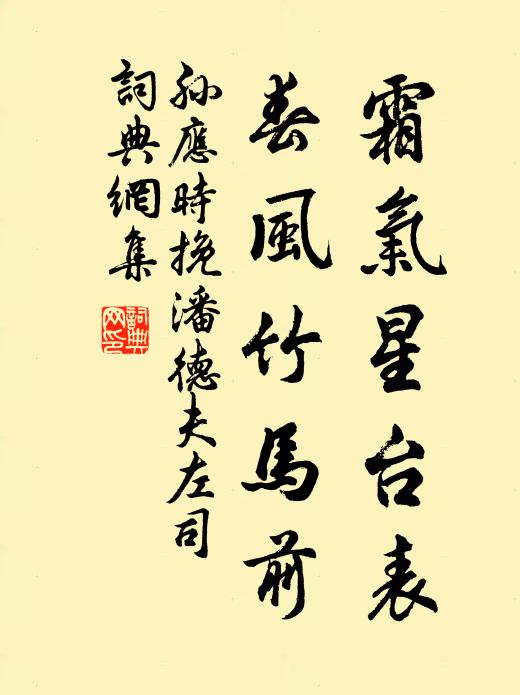 霜氣星台表
春風竹馬前
孫應時挽潘德夫左司
詞典網集
詞典
网印